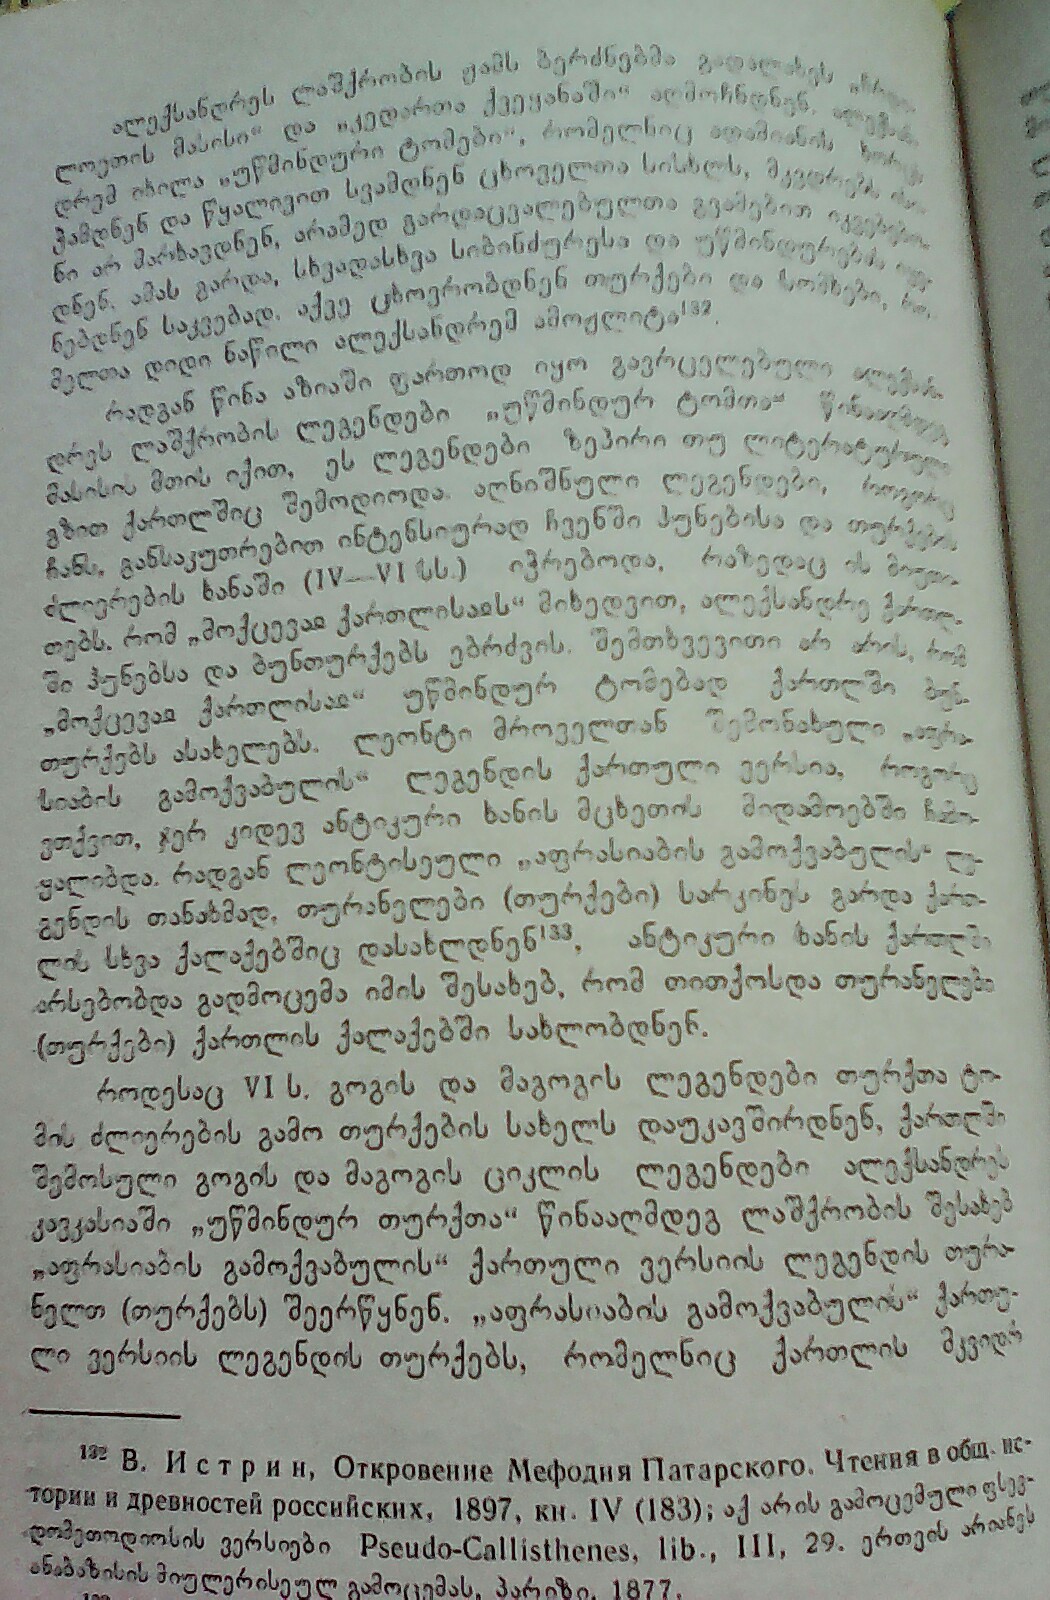 ალექსანდრეს ლაშქრობის ჟამს ბერძნებმა გადალახეს
ლოეთის მასისი“ და „კედართა ქვეყანაში“ აღმოჩნდნენ. ალექსან-
დრემ იხილა „უწმინდური ტომები“, რომელნიც ადამიანის ხორცს
ჭამდნენ და წყალივით სვამდნენ ცხოველთა სისხლს, მკვდრებს
ნი არ მარხავდნენ, არამედ გარდაცვალებულთა გვამებით იკვებებო-
დნენ. ამას გარდა, სხვადასხვა სიბინძურესა და უწმინდურებას
ნებდნენ საკვებად. აქვე ცხოვრობდნენ თურქები და სომხები, რო-
მელთა დიდი ნაწილი ალექსანდრემ ამოჟლიტა¹³².
რადგან წინა აზიაში ფართოდ იყო გავრცელებული ალექსან-
დრეს ლაშქრობის ლეგენდები „უწმინდურ ტომთა“ წინააღმდეგ
მასისის მთის იქით, ეს ლეგენდები ზეპირი თუ ლიტერატურული
გზით ქართლშიც შემოდიოდა. აღნიშნული ლეგენდები, როგორც
ჩანს, განსაკუთრებით ინტენსიურად ჩვენში ჰუნებისა და თურქების
ძლიერების ხანაში (IV—VI სს.) იჭრებოდა, რაზედაც ის მიუთი-
თებს, რომ „მოქცევაჲ ქართლისაჲს“ მიხედვით, ალექსანდრე ქართლ-
ში ჰუნებსა და ბუნთურქებს ებრძვის. შემთხვევითი არ არის, რომ
„მოქცევაჲ ქართლისაჲ“ უწმინდურ ტომებად ქართლში ბუნ-
თურქებს ასახელებს. ლეონტი მროველთან შემონახული „აფრა-
სიაბის გამოქვაბულის“ ლეგენდის ქართული ვერსია, როგორც
ვთქვით, ჯერ კიდევ ანტიკური ხანის მცხეთის მიდამოებში ჩამო-
ყალიბდა. რადგან ლეონტისეული „აფრასიაბის გამოქვაბულის“ ლე-
გენდის თანახმად, თურანელები (თურქები) სარკინეს გარდა ქართ-
ლის სხვა ქალაქებშიც დასახლდნენ¹³³, ანტიკური ხანის ქართლში
არსებობდა გადმოცემა იმის შესახებ, რომ თითქოსდა თურანელები
(თურქები) ქართლის ქალაქებში სახლობდნენ.
როდესაც VI ს. გოგის და მაგოგის ლეგენდები თურქთა ტო-
მის ძლიერების გამო თურქების სახელს დაუკავშირდნენ, ქართლში
შემოსული გოგის და მაგოგის ციკლის ლეგენდები ალექსანდრეს
კავკასიაში „უწმინდურ თურქთა“ წინააღმდეგ ლაშქრობის შესახებ
„აფრასიაბის გამოქვაბულის“ ქართული ვერსიის ლეგენდის თურა-
ნელთ (თურქებს) შეერწყნენ. „აფრასიაბის გამოქვაბულის“ ქართუ-
ლი ვერსიის ლეგენდის თურქებს, რომელნიც ქართლის მკვიდრ
¹³² В. Истрин, Откровение Мефодия Патарского. Чтения в общ. ис-
тории и древностей российских, 1897, кн. IV (183); აქ არის გამოცემული ფსევ-
დომეთოდიოსის ვერსიები Pseudo-Callisthenes, lib., III, 29. ერთვის არიანეს
ანაბაზისის მიულერისეულ გამოცემას, პარიზი, 1877.